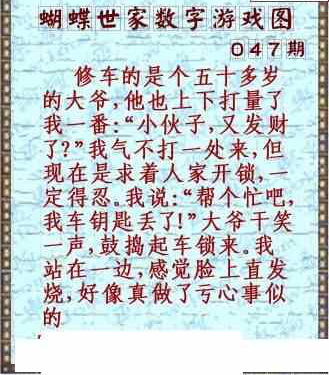 蝴蝶世家数字游戏图
047期
修车的是个五十多岁
的大爷,他也上下打量了
我一番:“小伙子,又发财
了?”我气不打一处来,但
现在是求着人家开锁,一
定得忍。我说:“帮个忙吧,
我车钥匙丢了!”大爷干笑
一声,鼓捣起车锁来。我
站在一边,感觉脸上直发
烧,好像真做了亏心事似
的